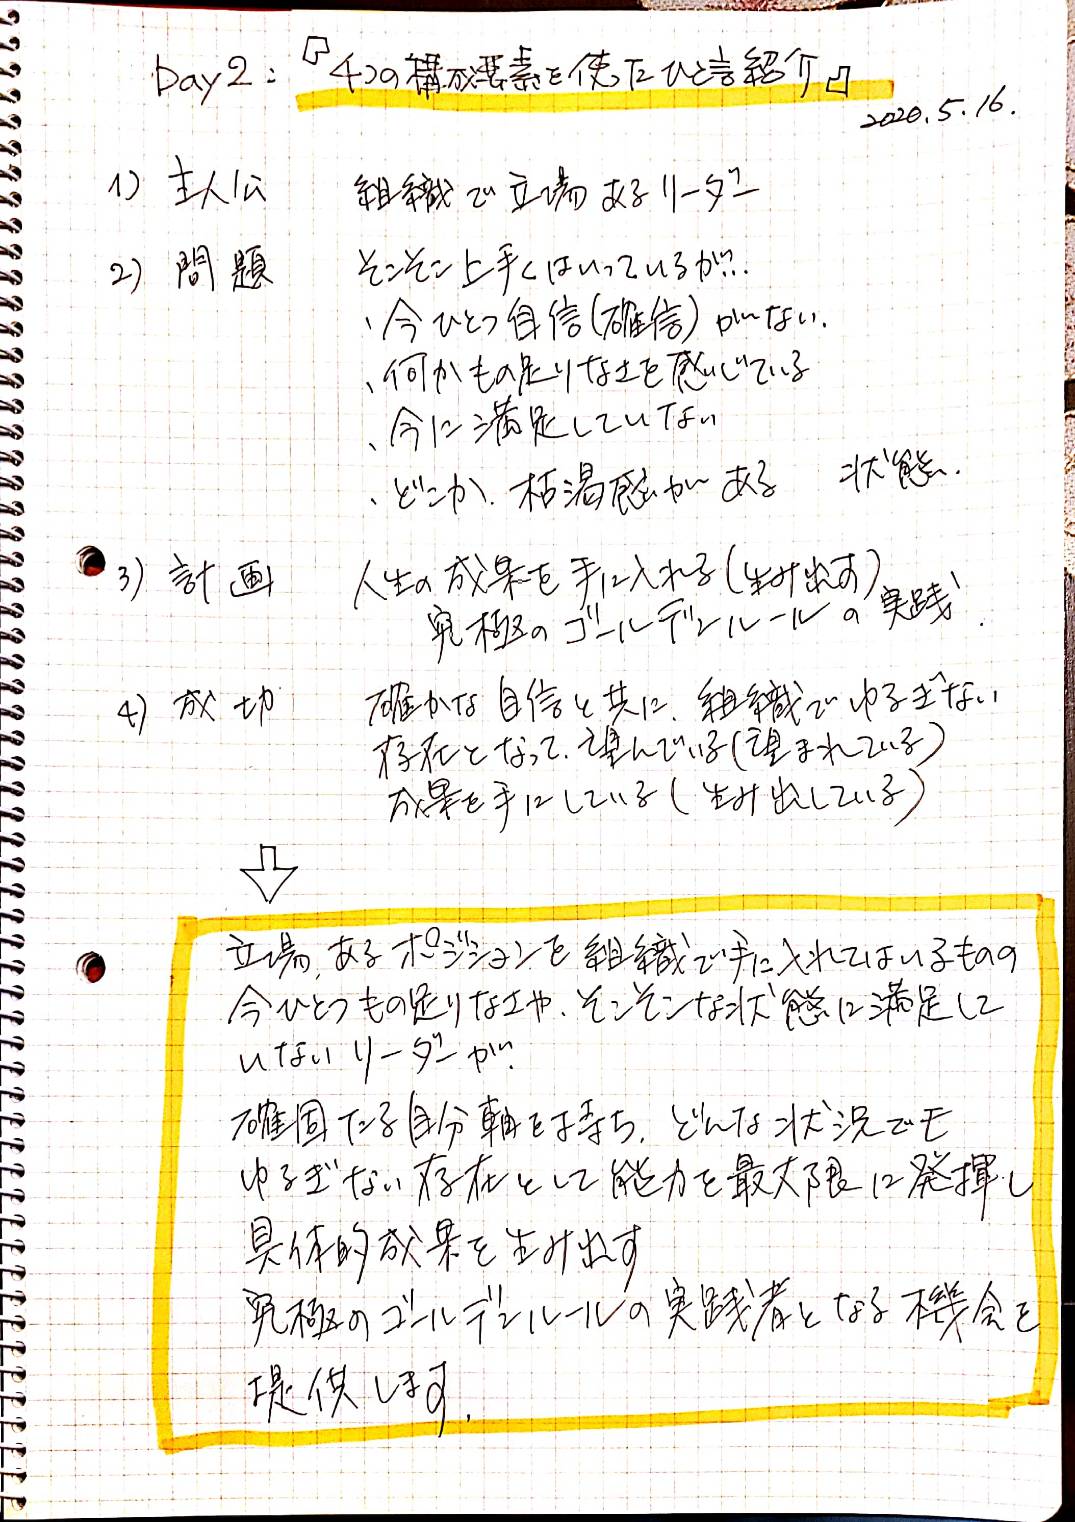 Day2:『4つの構成要素を使ったひと言紹介』
2020.5.16.
1) 主人公 組織で立場あるリーダー
2) 問題 そこそこ上手くはいっているが…
、今ひとつ自信(確信)がない.
、何かもの足りなさを感じている
、今に満足していない
、どこか、枯渇感がある 状態.
3) 計画 人生の成果を手に入れる(生み出す)
究極のゴールデンルールの実践.
4) 成功 確かな自信と共に、組織でゆるぎない
存在となって、望んでいる(望まれている)
成果を手にしている(生み出している)
立場、あるポジションを組織で手に入れてはいるものの
今ひとつもの足りなさや、そこそこな状態に満足して
いないリーダーが、
確固たる自分軸を持ち、どんな状況でも
ゆるぎない存在として能力を最大限に発揮し
具体的成果を生み出す
究極のゴールデンルールの実践者となる機会を
提供します.